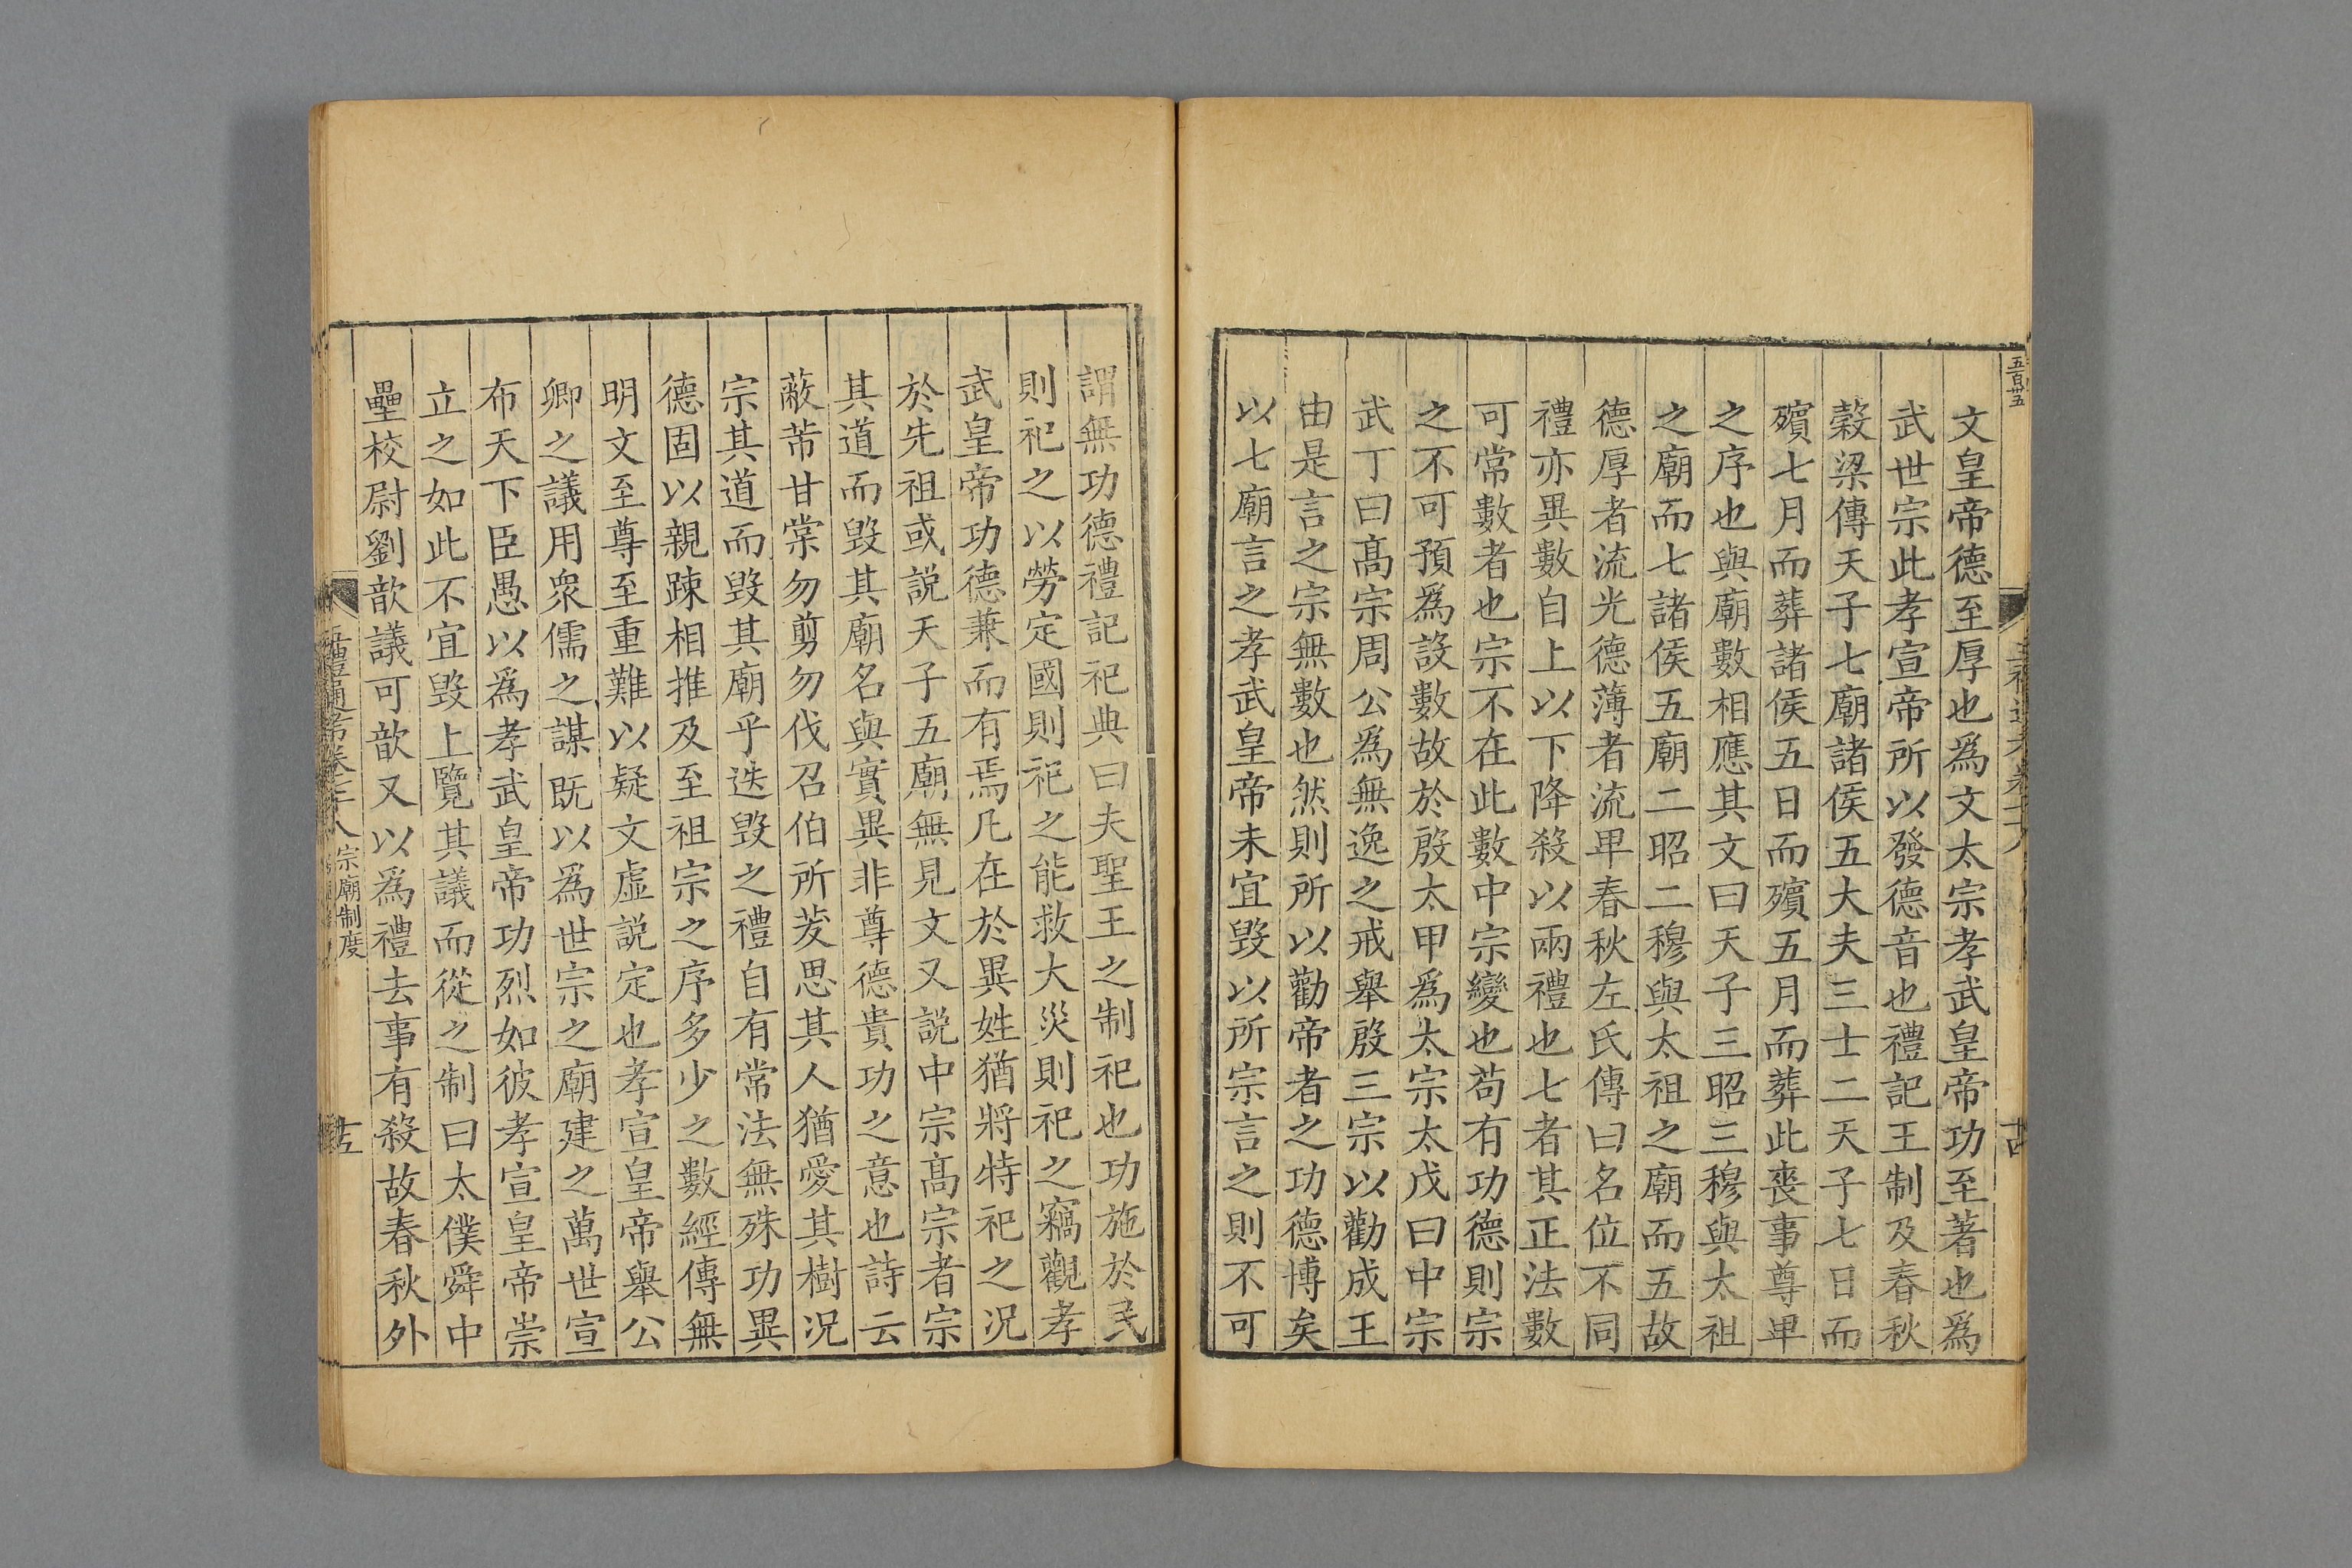 五百卅五
文皇帝德至厚也爲文太宗孝武皇帝功至著也爲
武世宗此孝宣帝所以發德音也禮記王制及春秋
穀梁傳天子七廟諸侯五大夫三士二天子七日而
殯七月而葬諸侯五日而殯五月而葬此喪事尊卑
之序也與廟數相應其文曰天子三昭三穆與太祖
之廟而七諸侯五廟二昭二穆與太祖之廟而五故
德厚者流光德薄者流卑春秋左氏傳曰名位不同
禮亦異數自上以下降殺以兩禮也七者其正法數
可常數者也宗不在此數中宗變也苟有功德則宗
之不可預爲設數故於殷太甲爲太宗太戊曰中宗
武丁曰髙宗周公爲無逸之戒舉殷三宗以勸成王
由是言之宗無數也然則所以勸帝者之功德博矣
以七廟言之孝武皇帝未宜毀以所宗言之則不可
謂無功德禮記祀典曰夫聖王之制祀也功施於民
則祀之以勞定國則祀之能救大災則祀之竊觀孝
武皇帝功德兼而有焉凡在於異姓猶將特祀之况
於先祖或説天子五廟無見文又説中宗髙宗者宗
其道而毀其廟名與實異非尊德貴功之意也詩云
蔽芾甘棠勿剪勿伐召伯所茇思其人猶愛其樹况
宗其道而毀其廟乎迭毀之禮自有常法無殊功異
德固以親踈相推及至祖宗之序多少之數經傳無
明文至尊至重難以疑文虛説定也孝宣皇帝舉公
卿之議用衆儒之謀既以爲世宗之廟建之萬世宣
布天下臣愚以爲孝武皇帝功烈如彼孝宣皇帝崇
立之如此不宜毀上覽其議而從之制曰太僕舜中
壘校尉劉歆議可歆又以爲禮去事有殺故春秋外
宗廟制度